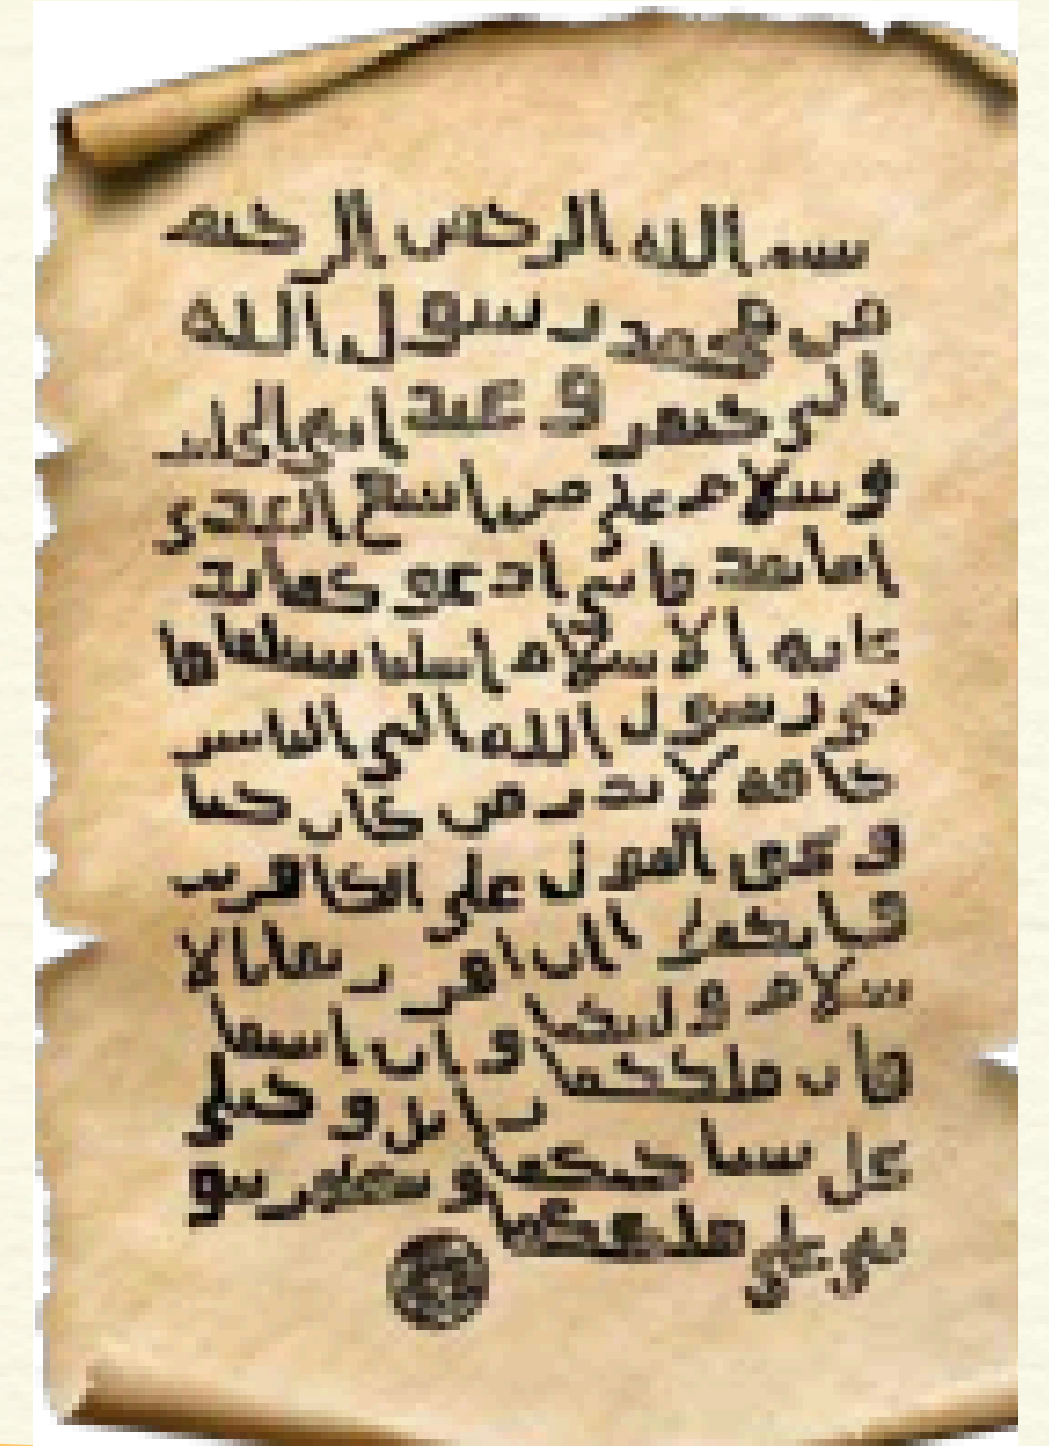 بسم الله الرحمن الرحيم
من محمد رسول الله
الى جيفر و عبد ابني الجلند
و سلام على من اتبع الهدى
اما بعد فاني ادعو كما بد
عايه الاسلام اسلما تسلما فا
ني رسول الله الى الناس
كافه لانذر من كان حيا
و يحق القول على الكافرين
فانكما ان اقررتما بالا
سلام و ليتكما و ان ابيتما
فان ملككما زايل و خيلي
تحل بساحتكما و تظهر نبو
تي على ملككما